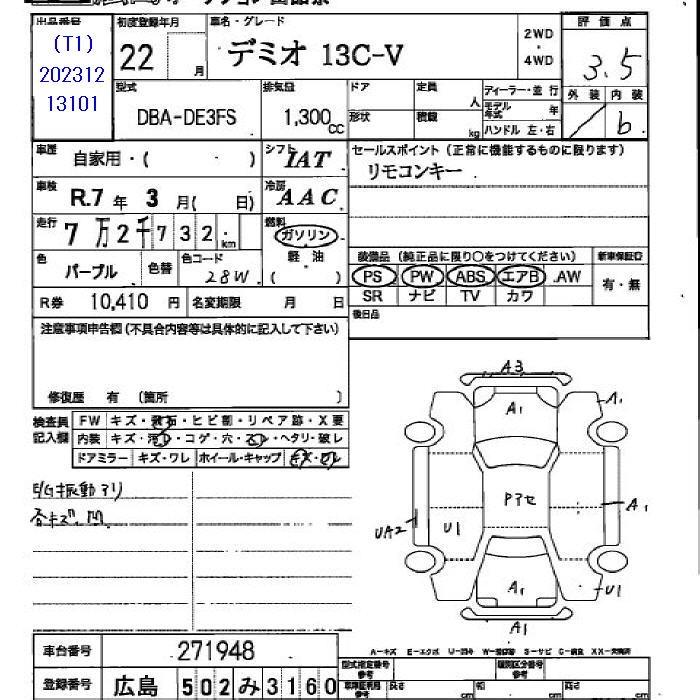 出品番号 初度登録年月 車名・グレード 評価点
(T1)
202312
13101
22 月 デミオ 13C-V 2WD・4WD 3.5
外装 内装
/ b.
型式 排気量 ドア 定員 人 ディーラー・並行
DBA-DE3FS 1,300cc モデル年式 年
形状 積載 kg ハンドル 左・右
車歴 自家用・( ) シフト IAT セールスポイント (正常に機能するものに限ります)
リモコンキー
車検 R.7年 3月( 日) 冷房 AAC
走行 7万2千732km 燃料 ガソリン
軽・油
( )
色 パープル 色替 色コード 28W
装備品 (純正品に限り○をつけてください) 新車保証書
PS PW ABS エアB .AW 有・無
SR ナビ TV カワ
R券 10,410円 名変期限 月 日
後日品
注意事項申告欄(不具合内容等は具体的に記入して下さい)
修復歴 有 (箇所 )
検査員記入欄
FW キズ・飛石・ヒビ割・リペア跡・X要
内装 キズ・汚レ・コゲ・穴・スレ・ヘタリ・破レ
ドアミラー キズ・ワレ ホイール・キャップ キズ・ワレ
E/G振動アリ
各キズ、凹
A3
A1
A1
Pアセ
A1
UA2
U1
A1
U1
A1
A-キズ E-エクボ U-凹み S-サビ C-腐食 XX-交換済
車台番号 271948
登録番号 広島 502 み 3160
型式指定番号 類別区分番号
長さ cm 幅 cm 高さ cm